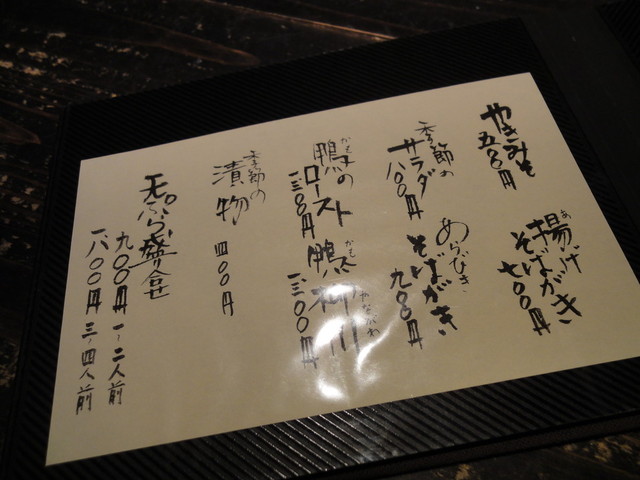 やきみそ
五〇〇円
揚げ
あ
そばがき
七〇〇円
季節の
サラダ
八〇〇円
あらびき
そばがき
九〇〇円
鴨の
かも
ロースト
一三〇〇円
鴨柳川
かも
やながわ
一三〇〇円
季節の
漬物
四〇〇円
天ぷら盛合せ
九〇〇円 一〜二人前
一八〇〇円 三〜四人前